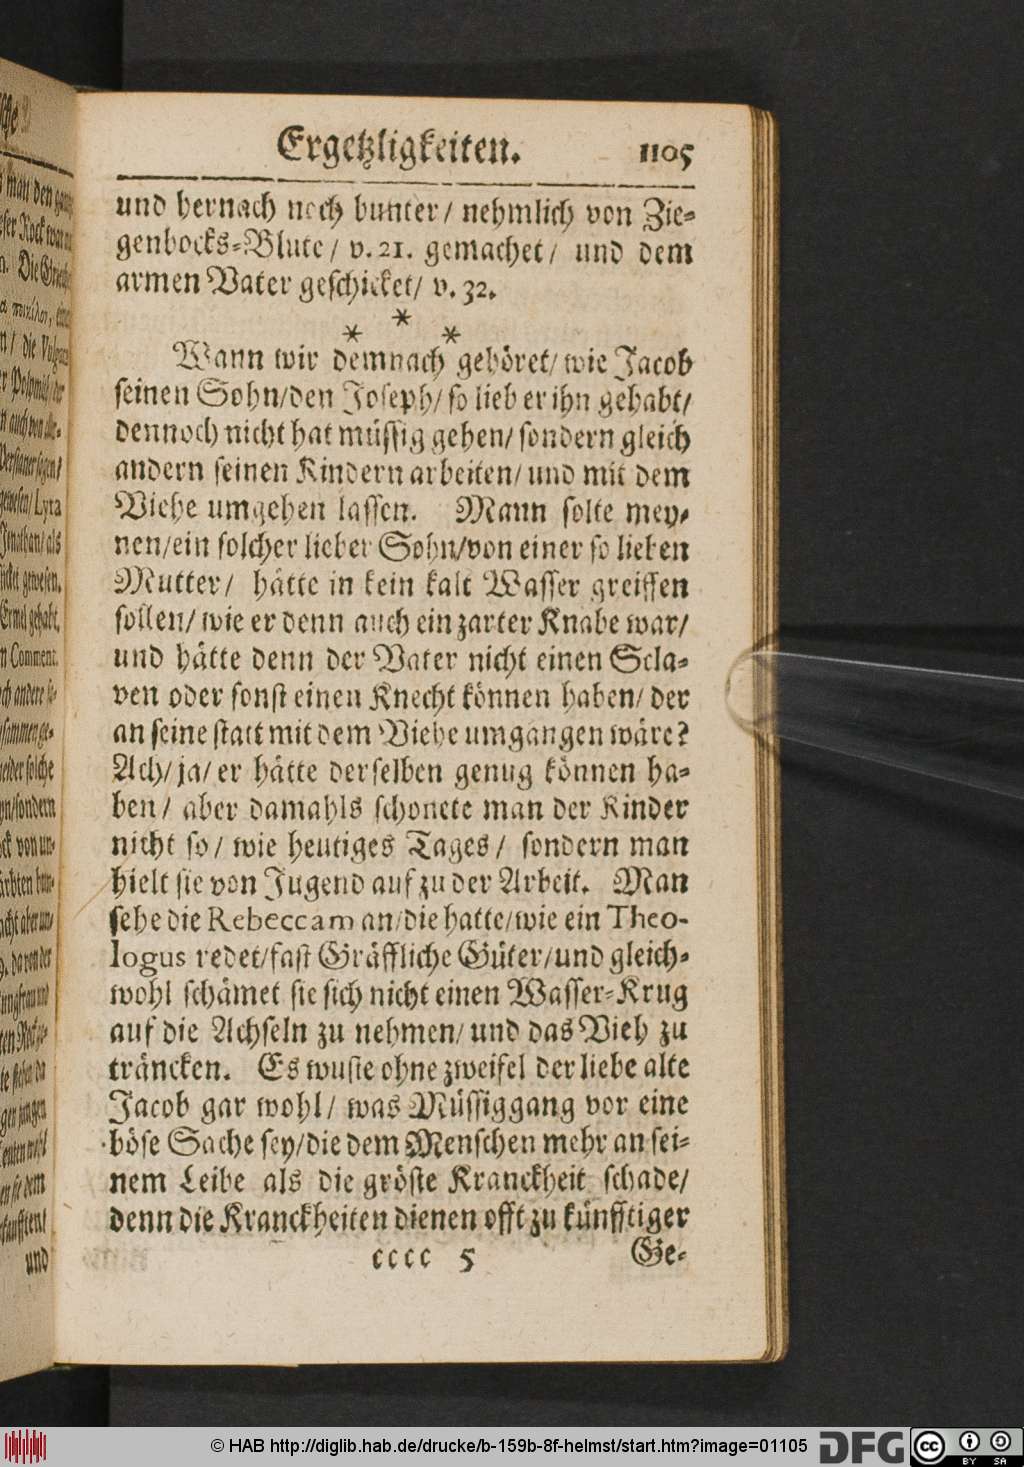 Ergetzligkeiten. 1105
und hernach noch bunter/ nehmlich von Zie-
genbocks-Blute/ v. 21. gemachet/ und dem
armen Vater geschicket/ v. 32.
* * *
Wann wir demnach gehöret/ wie Jacob
seinen Sohn/ den Joseph/ so lieb er ihn gehabt/
dennoch nicht hat müssig gehen/ sondern gleich
andern seinen Kindern arbeiten/ und mit dem
Viehe umgehen lassen. Mann solte mey-
nen/ ein solcher lieber Sohn/ von einer so lieben
Mutter/ hätte in kein kalt Wasser greiffen
sollen/ wie er denn auch ein zarter Knabe war/
und hätte denn der Vater nicht einen Scla-
ven oder sonst einen Knecht können haben/ der
an seine statt mit dem Viehe umgangen wäre?
Ach/ ja/ er hätte derselben genug können ha-
ben/ aber damahls schonete man der Kinder
nicht so/ wie heutiges Tages/ sondern man
hielt sie von Jugend auf zu der Arbeit. Man
sehe die Rebeccam an/ die hatte/ wie ein Theo-
logus redet/ fast Gräffliche Güter/ und gleich-
wohl schämet sie sich nicht einen Wasser-Krug
auf die Achseln zu nehmen/ und das Vieh zu
träncken. Es wuste ohne zweifel der liebe alte
Jacob gar wohl/ was Müssiggang vor eine
böse Sache sey/ die dem Menschen mehr an sei-
nem Leibe als die gröste Kranckheit schade/
denn die Kranckheiten dienen offt zu künfftiger
cccc 5 Ge-
© HAB http://diglib.hab.de/drucke/b-159b-8f-helmst/start.htm?image=01105 DFG cc BY SA